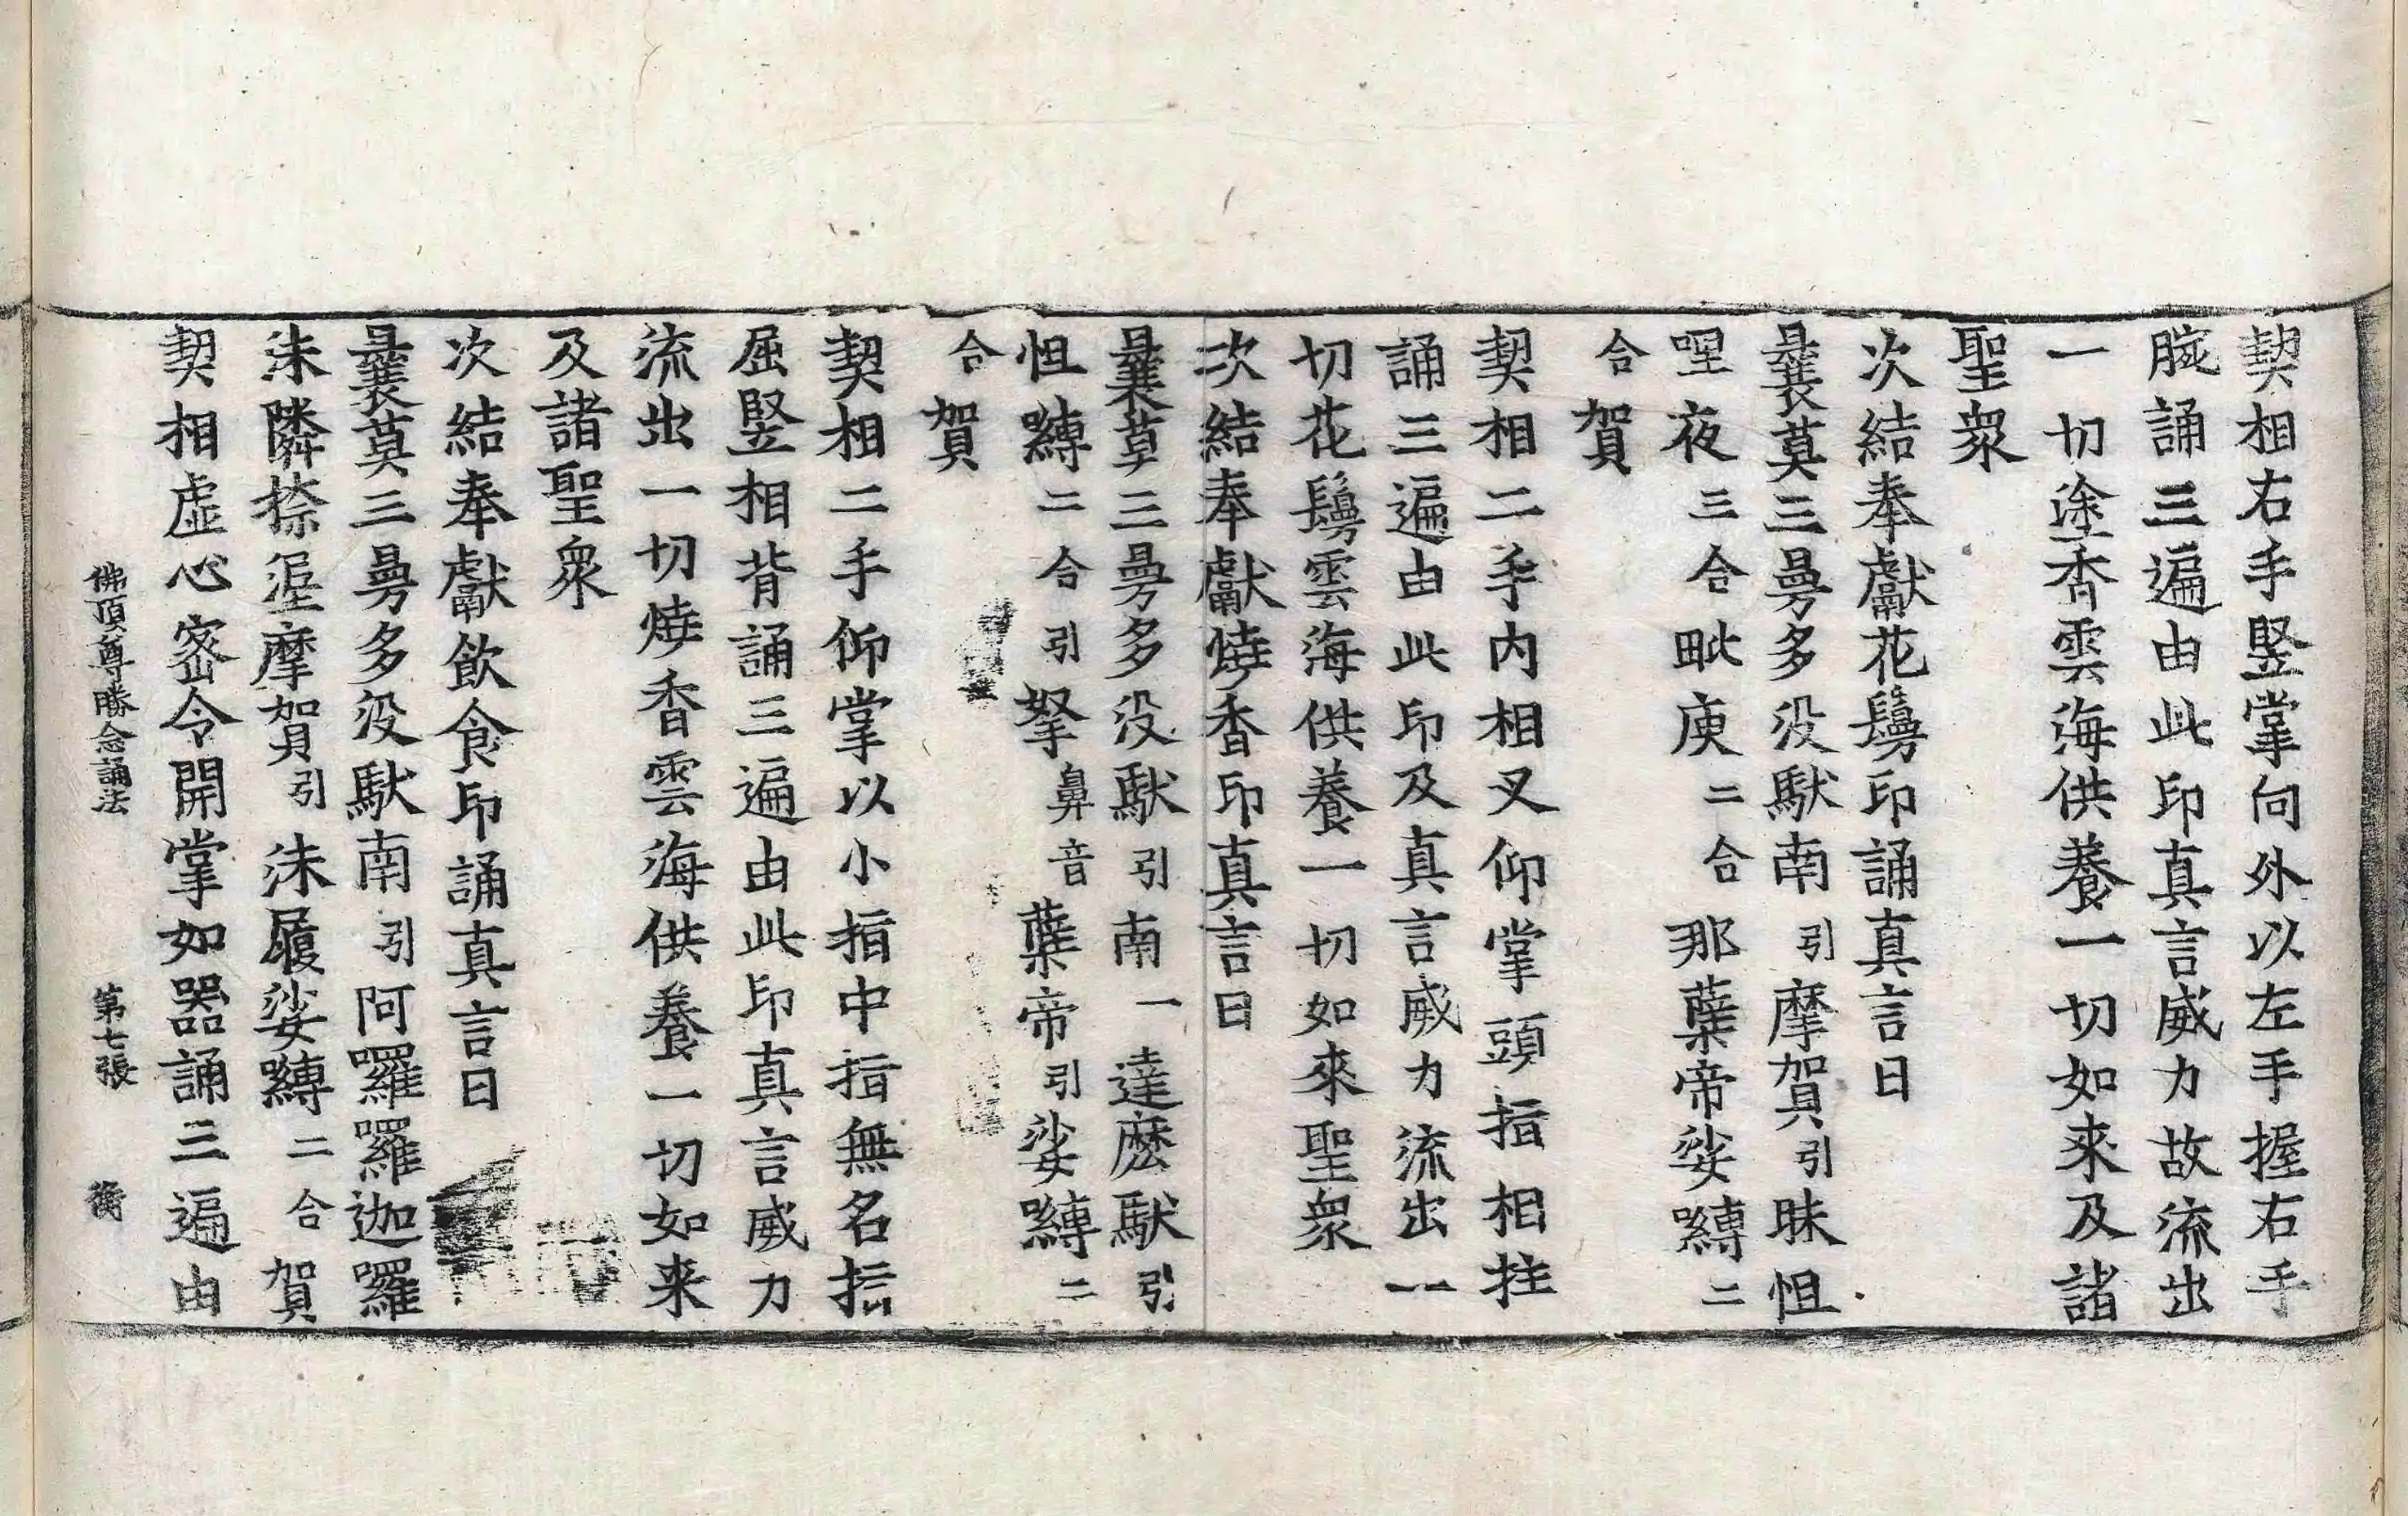 契相右手竪掌向外以左手握右手
腕誦三遍由此印真言威力故流出
一切塗香雲海供養一切如来及諸
聖衆
次結奉獻花鬘印誦真言曰
曩莫三曼多没馱南引摩賀引昧怛
哩夜三合毗庾二合那蘖帝娑嚩二
合賀
契相二手內相叉仰掌頭指相拄
誦三遍由此印及真言威力流出一
切花鬘雲海供養一切如來聖衆
次結奉獻燒香印真言曰
曩莫三曼多没馱引南一達麽馱引
怛嚩二合引拏鼻音蘖帝引娑嚩二
合賀
契相二手仰掌以小指中指無名指
屈竪相背誦三遍由此印真言威力
流出一切燒香雲海供養一切如来
及諸聖衆
次結奉獻飲食印誦真言曰
曩莫三曼多没馱南引阿囉囉迦囉
沬隣捺渥摩賀引沬履娑嚩二合賀
契相虛心密令開掌如器誦三遍由
佛頂尊勝念誦法 第七張 衡